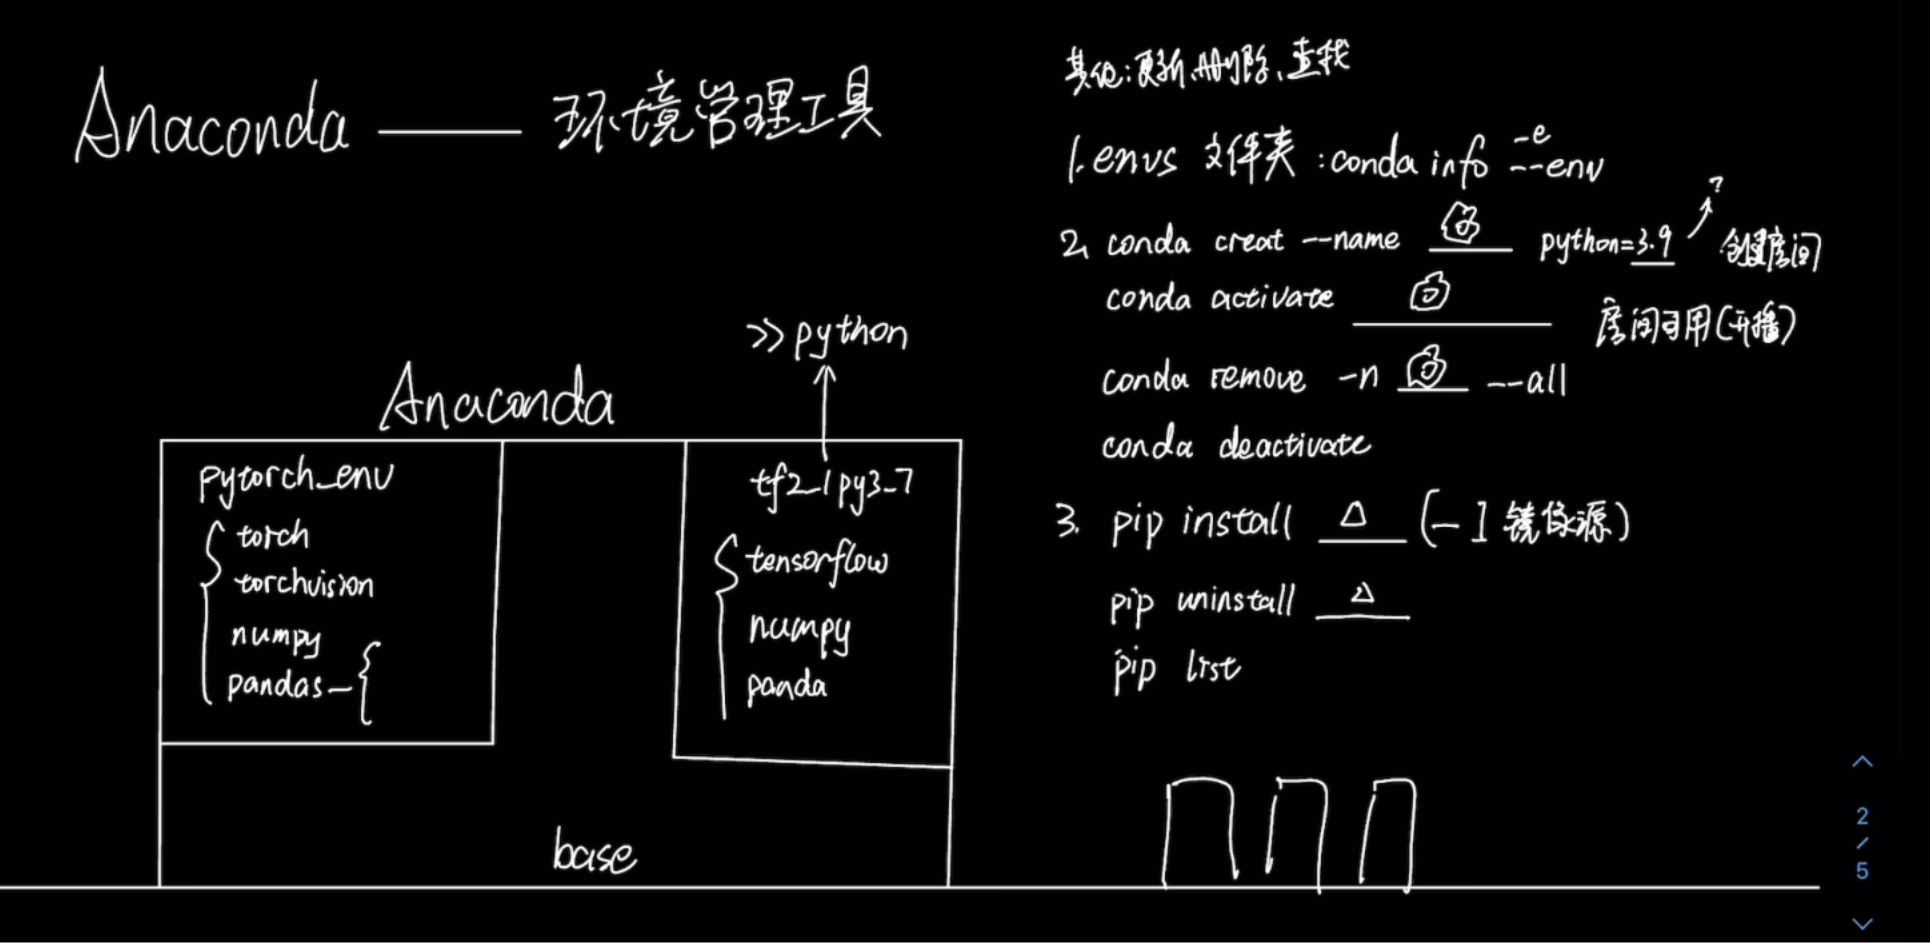 Anaconda —— 环境管理工具
Anaconda
>> python
pytorch_env
torch
torchvision
numpy
pandas
tf2_1py3_7
tensorflow
numpy
panda
base
其他:更新、删除、查找
1. envs 文件夹:conda info --env
-e
2. conda creat --name ____ python=3.9 ? 创建房间
conda activate ____ 房间可用(开播)
conda remove -n ____ --all
conda deactivate
3. pip install Δ (-] 镜像源)
pip uninstall Δ
pip list
2
/
5